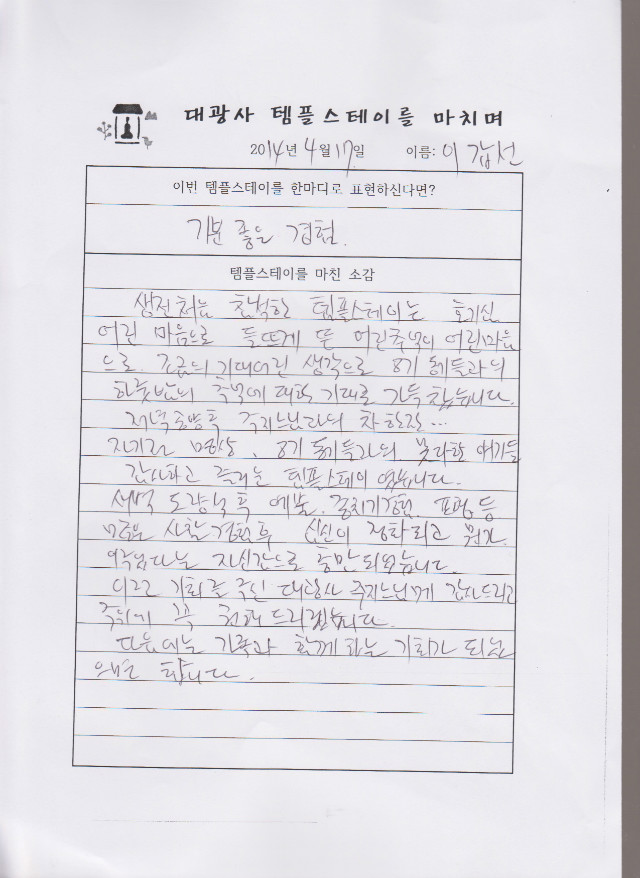 대광사 템플스테이를 마치며
2014년 4월 17일 이름: 이갑선
이번 템플스테이를 한마디로 표현하신다면?
기분 좋은 경험.
템플스테이를 마친 소감
생전처음 템플스테이는 호기심
어린 마음으로 들뜨게 된 어린추억의 어린마음
으로 조금의 기대어린 생각으로 8기 동기들과의
하룻밤의 추억에 대한 기대로 가득 찼습니다.
저녁공양후 주지스님과의 차 한잔...
자기전 명상, 8기 동기들과의 못다한 얘기들
감사하고 즐거운 템플스테이 였습니다.
새벽 도량석 후 예불, 경험, 등
사찰경험후 심신이 정화되고 뭔가
자신감으로 충만되었습니다.
이런 기회를 주신 대광사 주지스님께 감사드리고
주위에 꼭 추천해 드리겠습니다.
다음에는 가족과 함께하는 기회가 되었
으면 합니다.